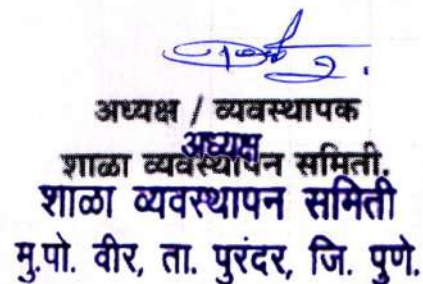 अध्यक्ष / व्यवस्थापक
अध्यक्ष
शाळा व्यवस्थापन समिती.
शाळा व्यवस्थापन समिती
मु.पो. वीर, ता. पुरंदर, जि. पुणे.